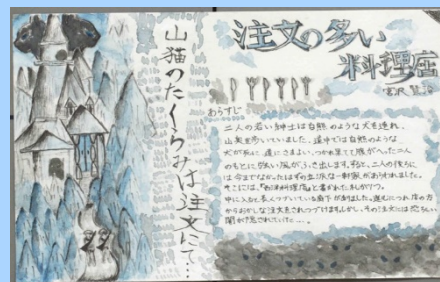 注文の多い
料理店
宮沢 賢治
山猫のたくらみは注文にて…
あらすじ
二人の若い紳士は白熊のような犬を連れ、
山奥を歩いていました。途中で白熊のような
犬が死に、道にさまよい、つかれ果てて腹がへった二人
のもとに強い風がふき出します。すると、二人の後ろに
は今までなかったはずの立派な一軒家があらわれました。
そこには、「西洋料理店」と書かれた札がひとつ。
中に入ると長くつづいている廊下がありました。進むにつれ、扉の方
からおかしな注文をされつづけます。しかし、その注文には恐ろしい
闇が隠されていた…。